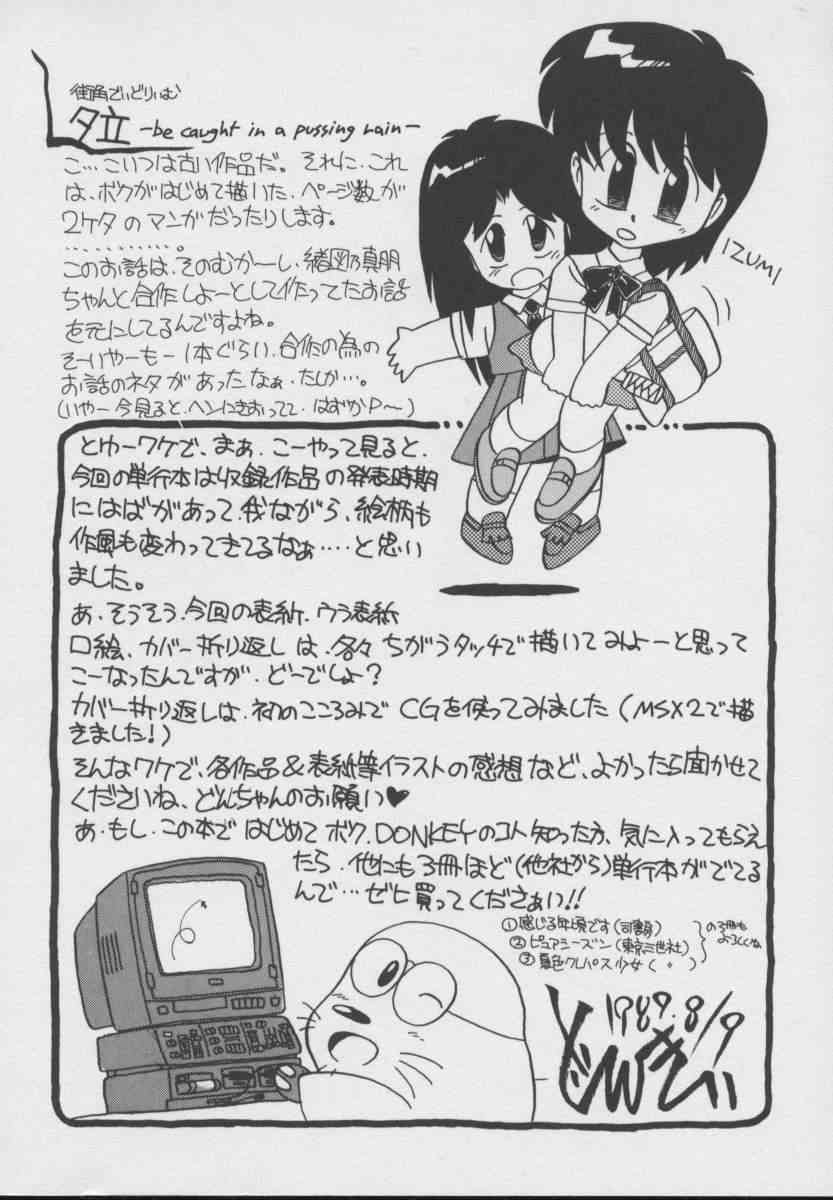 街角でいどりいむ
夕立 -be caught in a passing rain-
こ…こいつは古い作品だ。それに、これ
は、ボクがはじめて描いた、ページ数が
2ケタのマンガだったりします。
…………。
このお話は、そのむかーし、緒図乃真朋
ちゃんと合作しよーとして作ってたお話
を元にしてるんですよね。
そーいやーもー1本ぐらい、合作の為の
お話のネタがあったなぁ、たしか…。
(いやー今見ると、ヘンにきおってて、はずかP〜)
IZUMI
とゆーワケで、まぁ、こーやって見ると、
今回の単行本は収録作品の発表時期
にはばがあって、我ながら、絵柄も
作風も変わってきてるなぁ‥‥と思い
ました。
あ、そうそう、今回の表紙、ウラ表紙
口絵、カバー折り返しは、各々ちがうタッチで描いてみよーと思って
こーなったんですが、どーでしょ?
カバー折り返しは、初のこころみでCGを使ってみました(MSX2で描
きました!)
そんなワケで、各作品&表紙等イラストの感想など、よかったら聞かせて
くださいね、どんちゃんのお願い♥
あ、もし、この本ではじめてボク、DONKEYのコト知った方、気に入ってもらえ
たら、他にも3冊ほど(他社から)単行本がでてる
んで…ゼヒ買ってくださぁい!!
①感じる年頃です(司書房)
②ピュアシーズン(東京三世社)
③夏色クレパス少女( 〃 )
の3冊も
よろしくね
1989.8/9
どんきい